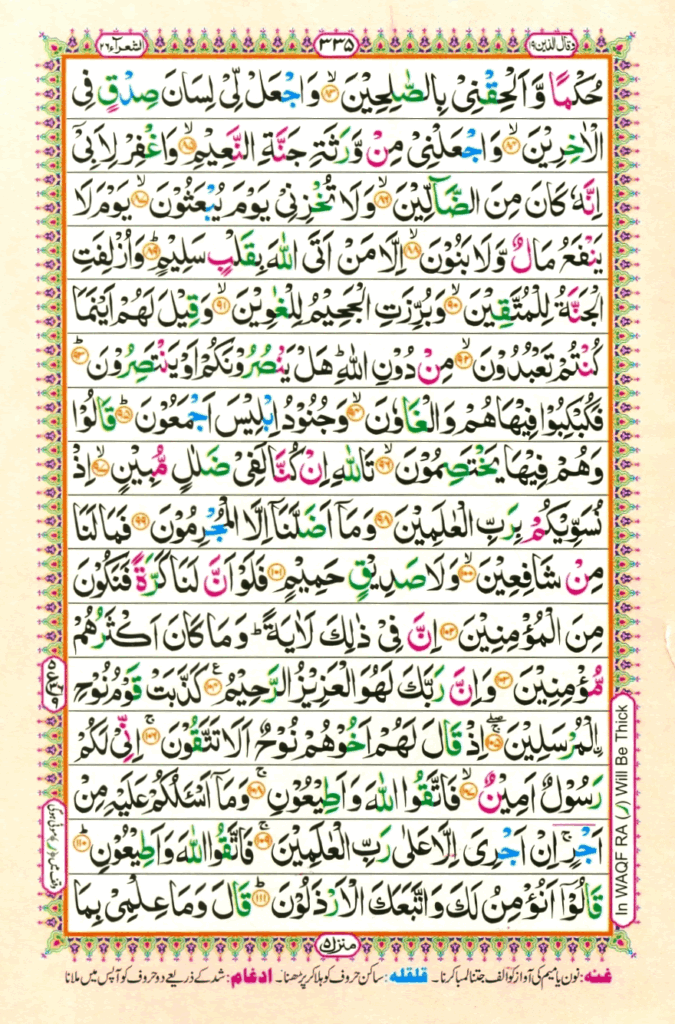 وقال الذين ١٩
٣٣٥
الشعرآء ٢٦
حُكْمًا وَّاَلْحِقْنِىْ بِالصّٰلِحِيْنَ ۙ‏﴿۸۳﴾‏ وَاجْعَلْ لِّىْ لِسَانَ صِدْقٍ فِى
الْاٰخِرِيْنَ ۙ‏﴿۸۴﴾‏ وَاجْعَلْنِىْ مِنْ وَّرَثَةِ جَنَّةِ النَّعِيْمِ ۙ‏﴿۸۵﴾‏ وَاغْفِرْ لِاَبِىْۤ
اِنَّهٗ كَانَ مِنَ الضَّآلِّيْنَ ۙ‏﴿۸۶﴾‏ وَلَا تُخْزِنِىْ يَوْمَ يُبْعَثُوْنَ ۙ‏﴿۸۷﴾‏ يَوْمَ لَا
يَنْفَعُ مَالٌ وَّلَا بَنُوْنَ ۙ‏﴿۸۸﴾‏ اِلَّا مَنْ اَتَى اللّٰهَ بِقَلْبٍ سَلِيْمٍؕ‏﴿۸۹﴾‏ وَاُزْلِفَتِ
الْجَنَّةُ لِلْمُتَّقِيْنَ ۙ‏﴿۹۰﴾‏ وَبُرِّزَتِ الْجَحِيْمُ لِلْغٰوِيْنَ ۙ‏﴿۹۱﴾‏ وَقِيْلَ لَهُمْ اَيْنَمَا
كُنْتُمْ تَعْبُدُوْنَ ۙ‏﴿۹۲﴾‏ مِنْ دُوْنِ اللّٰهِؕ هَلْ يَنْصُرُوْنَكُمْ اَوْ يَنْتَصِرُوْنَؕ‏﴿۹۳﴾‏
فَكُبْكِبُوْا فِيْهَا هُمْ وَالْغَاوٗنَ ۙ‏﴿۹۴﴾‏ وَجُنُوْدُ اِبْلِيْسَ اَجْمَعُوْنَؕ‏﴿۹۵﴾‏ قَالُوْا
وَهُمْ فِيْهَا يَخْتَصِمُوْنَ ۙ‏﴿۹۶﴾‏ تَاللّٰهِ اِنْ كُنَّا لَفِىْ ضَلٰلٍ مُّبِيْنٍ ۙ‏﴿۹۷﴾‏ اِذْ
نُسَوِّيْكُمْ بِرَبِّ الْعٰلَمِيْنَ‏﴿۹۸﴾‏ وَمَاۤ اَضَلَّنَاۤ اِلَّا الْمُجْرِمُوْنَ‏﴿۹۹﴾‏ فَمَا لَنَا
مِنْ شَافِعِيْنَ ۙ‏﴿۱۰۰﴾‏ وَلَا صَدِيْقٍ حَمِيْمٍ‏﴿۱۰۱﴾‏ فَلَوْ اَنَّ لَنَا كَرَّةً فَنَكُوْنَ
مِنَ الْمُؤْمِنِيْنَ‏﴿۱۰۲﴾‏ اِنَّ فِىْ ذٰلِكَ لَاٰيَةً ؕ وَمَا كَانَ اَكْثَرُهُمْ
مُّؤْمِنِيْنَ‏﴿۱۰۳﴾‏ وَاِنَّ رَبَّكَ لَهُوَ الْعَزِيْزُ الرَّحِيْمُ‏﴿۱۰۴﴾‏ كَذَّبَتْ قَوْمُ نُوْحِ
اۨلْمُرْسَلِيْنَ ۖۚ‏﴿۱۰۵﴾‏ اِذْ قَالَ لَهُمْ اَخُوْهُمْ نُوْحٌ اَلَا تَتَّقُوْنَ ۚ‏﴿۱۰۶﴾‏ اِنِّىْ لَكُمْ
رَسُوْلٌ اَمِيْنٌ ۙ‏﴿۱۰۷﴾‏ فَاتَّقُوا اللّٰهَ وَاَطِيْعُوْنِ ۚ‏﴿۱۰۸﴾‏ وَمَاۤ اَسْـَٔلُكُمْ عَلَيْهِ مِنْ
اَجْرٍ ۚ اِنْ اَجْرِىَ اِلَّا عَلٰى رَبِّ الْعٰلَمِيْنَ ۚ‏﴿۱۰۹﴾‏ فَاتَّقُوا اللّٰهَ وَاَطِيْعُوْنِؕ‏﴿۱۱۰﴾‏
قَالُوْۤا اَنُؤْمِنُ لَكَ وَاتَّبَعَكَ الْاَرْذَلُوْنَؕ‏﴿۱۱۱﴾‏ قَالَ وَمَا عِلْمِىْ بِمَا
In WAQF RA (ر) Will Be Thick
منزل ۵
غنه: نون یا میم کی آواز کو الف جتنا لمبا کرنا۔ قلقله: ساکن حروف کو ہلا کر پڑھنا۔ ادغام: شد کے ذریعے دو حروف کو آپس میں ملانا